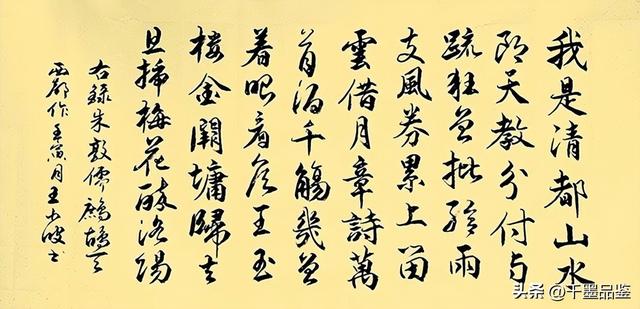 我是清都山水
郎天教分付与
疏狂曾批給雨
支風券累上留
雲借月章詩萬
首酒千觴幾曾
着眼看侯王玉
楼金闕慵歸去
且插梅花醉洛陽
右錄朱敦儒鷓鴣天
西都作壬寅月王书
头条 @千墨品鉴